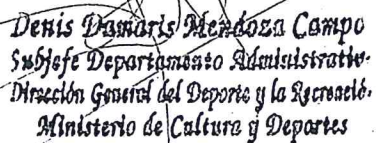 Denis Damaris Mendoza Campo
Subjefe Departamento Administrativ·
Dirección General del Deporte y la Recreació·
Ministerio de Cultura y Deportes